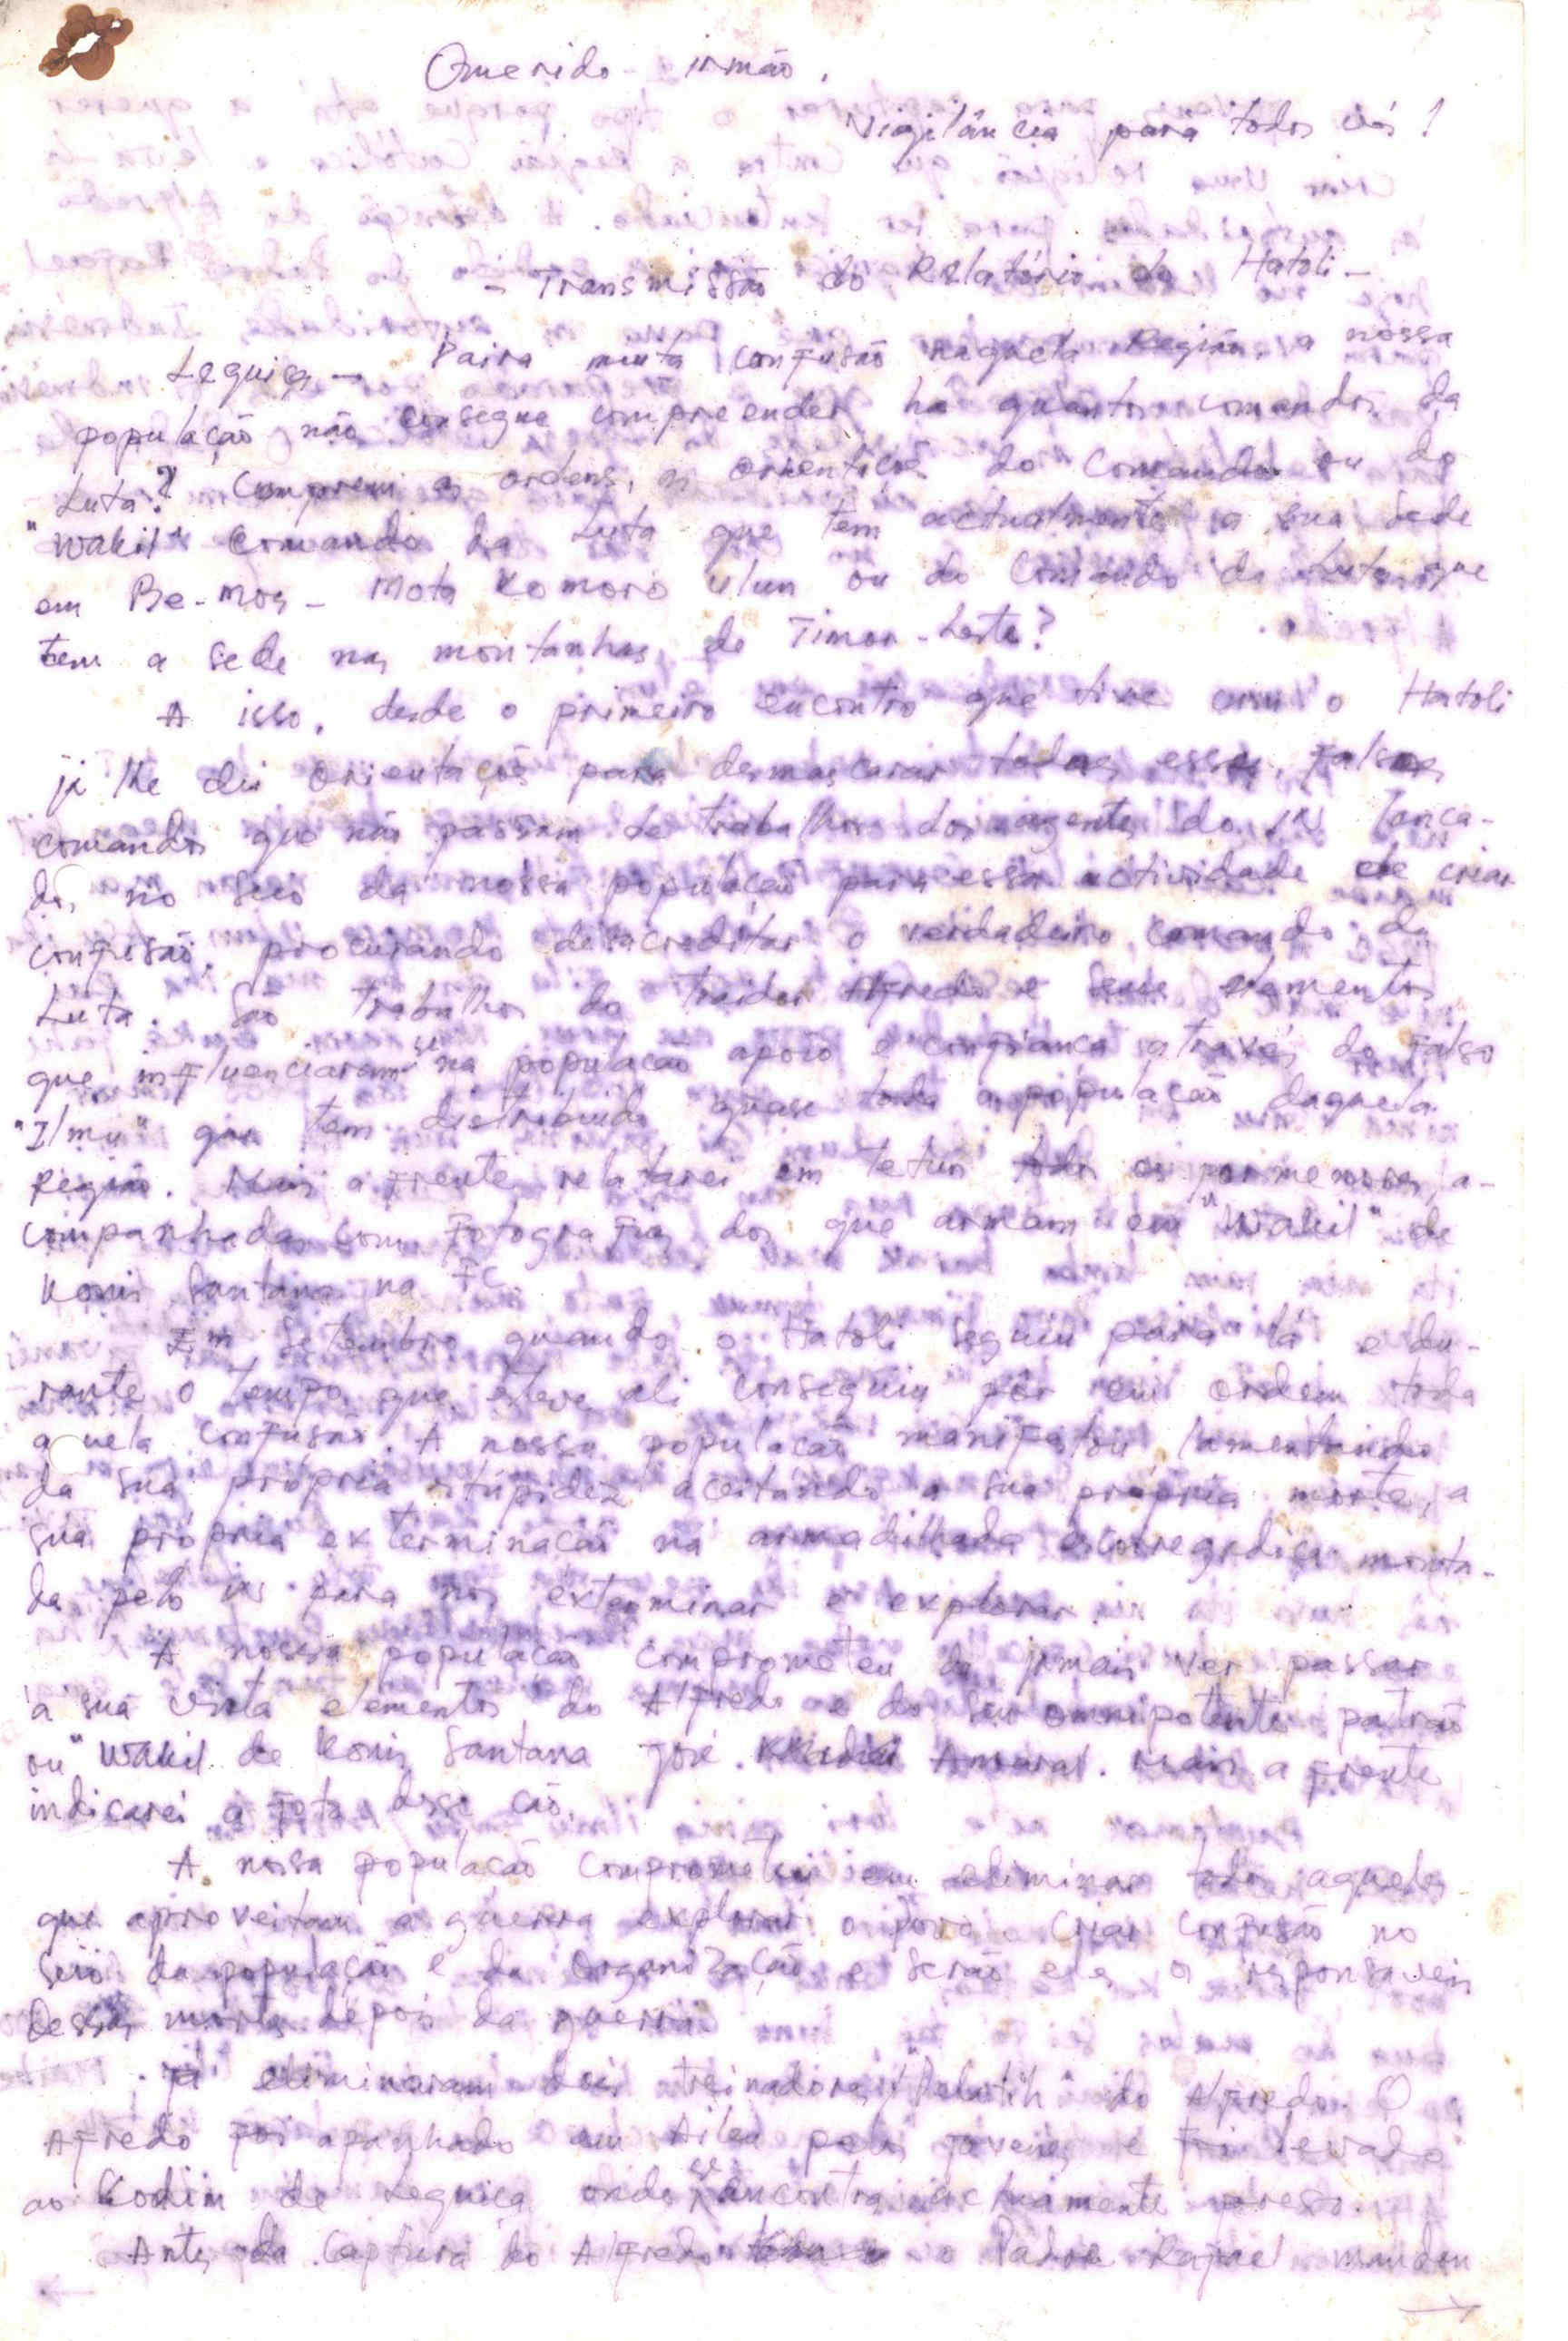 Querido irmão,
Vigilância para todos nós!
- Transmissão do Relatório do Hatoli -
Lequiça - Paira muita confusão naquela Região, a nossa
população não consegue compreender há quantos comandos da
Luta? Comprem as ordens, as orientações do Comando ou do
"Wakil" Comando da Luta que tem actualmente a sua Sede
em Be-mos - Mota Komoro Ulun ou do Comando da Luta que
tem a sede nas montanhas de Timor-Leste?
A isso, desde o primeiro encontro que tive com o Hatoli
já lhe dei orientações para desmascarar todos esses falsos
comandos que não passam de trabalhos dos agentes do IN lança-
dos no seio da nossa população para essa actividade de criar
confusão, procurando desacreditar o verdadeiro comando da
Luta. São trabalhos do traidor Alfredo e seus elementos
que influenciaram se na população apoio e confiança através do falso
"Ilmu" que tem distribuido quase toda a população daquela
Região. Mais a frente relatarei em tetun todos os pormenores, a-
companhadas com fotografias dos que armam em "Wakil" de
Konis Santana na FC.
Em Setembro quando o Hatoli seguiu para lá e du-
rante o tempo que esteve ali conseguiu pôr em ordem toda
aquela confusão. A nossa população manifestou lamentando
da sua própria estúpidez aceitando a sua própria morte, a
sua própria exterminação na armadilhada escorregadiça monta-
da pelo IN para nos exterminar e explorar.
A nossa população comprometeu de jamais ver passar
à sua vista elementos do Alfredo e do seu omnipotente patrão
ou "Wakil" de Konis Santana José Amaral. Mais a frente
indicarei a foto desse cão.
A nossa população comprometeu em eliminar todos aqueles
que aproveitam a guerra explorar o povo e criar confusão no
seio da população e da Organização e serão eles os responsáveis
dessas mortes depois da guerra.
Já eliminaram dois treinadores/"Pelatih" do Alfredo. O
Alfredo foi apanhado em Aileu pelos jovens e foi levado
ao Kodim de Lequiça onde se encontra actuamente preso.
Antes da Captura do Alfredo o Padre Rafael mandou